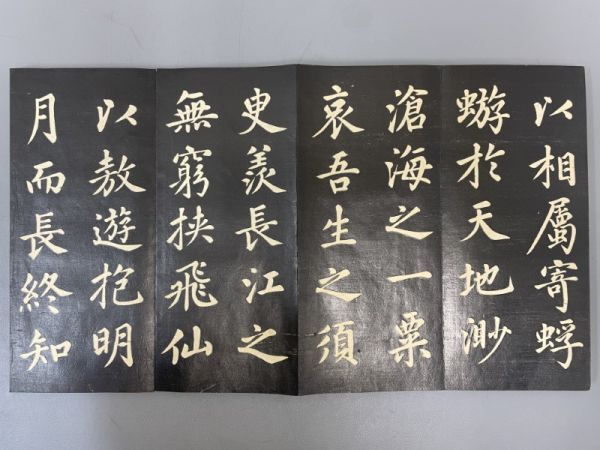 以相屬寄蜉
蝣於天地渺
滄海之一粟
哀吾生之須
臾羨長江之
無窮挾飛仙
以敖遊抱明
月而長終知